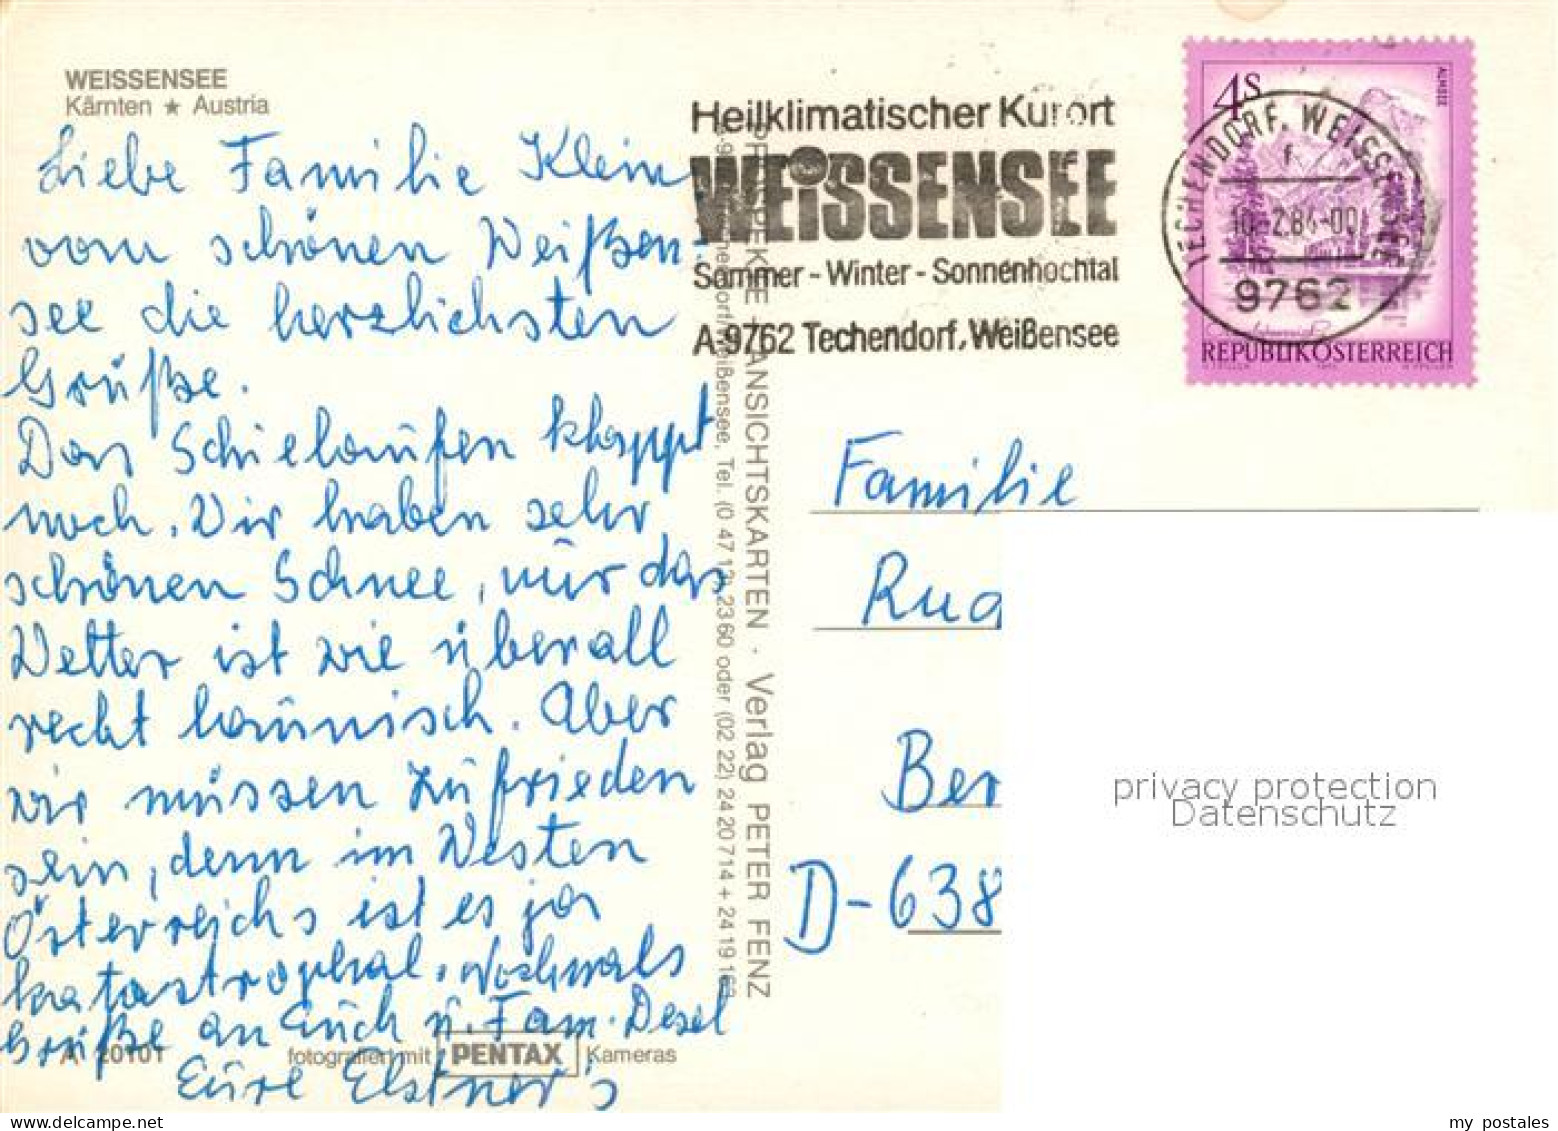 WEISSENSEE
Kärnten ★ Austria
Liebe Familie Klein
vom schönen Weißen-
see die herzlichsten
Grüße.
Das Schielaufen klappt
noch. Wir haben sehr
schönen Schnee, nur das
Wetter ist wie überall
recht launisch. Aber
wir müssen zufrieden
sein, denn im Westen
Österreichs ist es ja
katastrophal. Nochmals
Grüße an Euch u. Fam. Desel
Eure Elstner's
A 20101
fotografiert mit PENTAX Kameras
PROSPEKTE + ANSICHTSKARTEN · Verlag PETER FENZ
Techendorf/Weißensee, Tel. (0 47 13) 23 60 oder (02 22) 24 20 714 + 24 19 162
Heilklimatischer Kurort
WEISSENSEE
Sommer - Winter - Sonnenhochtal
A-9762 Techendorf, Weißensee
4S
ALMSEE
TECHENDORF, WEISSENSEE
10.-2.84-00
9762
REPUBLIK ÖSTERREICH
Familie
Rud
Ber
D-638
privacy protection
Datenschutz
my postales